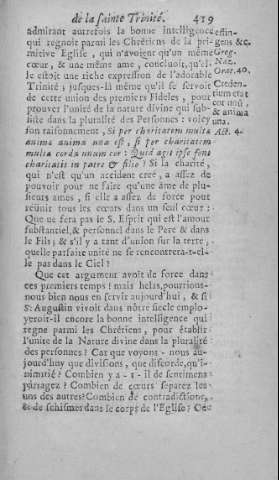 de la sainte Trinité. 419
admirant autrefois la bonne intelligence
qui regnoit parmi les Chrétiens de la pri-
mitive Eglise, qui n'avoient qu'un même
cœur, & une même ame, concluoit, qu'el-
le estoit une riche expression de l'adorable
Trinité ; jusques-là même qu'il se servoit
de cette union des premiers Fideles, pour
prouver l'unité de la nature divine qui sub-
siste dans la pluralité des Personnes : voicy
son raisonnement, Si per charitatem multa
anima anima una est, si per charitatem
multa corda unum cor : Quid agit ipse fons
charitatis in patre & filio ? Si la charité,
qui n'est qu'un accident creé, a assez de
pouvoir pour ne faire qu'une ame de plu-
sieurs ames, si elle a assez de force pour
réünir tous les cœurs dans un seul cœur :
Que ne fera pas le S. Esprit qui est l'amour
substantiel, & personnel dans le Pere & dans
le Fils ; & s'il y a tant d'union sur la terre,
quelle parfaite unité ne se rencontrera-t-el-
le pas dans le Ciel ?
Que cet argument avoit de force dans
ces premiers temps ! mais helas, pourrions-
nous bien nous en servir aujourd'hui, & si
S. Augustin vivoit dans nôtre siecle employ-
eroit-il encore la bonne intelligence qui
regne parmi les Chrétiens, pour établir
l'unité de la Nature divine dans la pluralité
des personnes ? Car que voyons-nous au-
jourd'huy que divisions, que discorde, qu'i-
nimitié ? Combien y a-t-il de sentimens
partagez ? Combien de cœurs separez les
uns des autres ? Combien de contradictions,
& de schismes dans le corps de l'Eglise ? Où
gens &c.
Greg.
Naz.
Orat. 40.
Creden-
tium erat
cor unū,
& anima
una.
Act. 4.